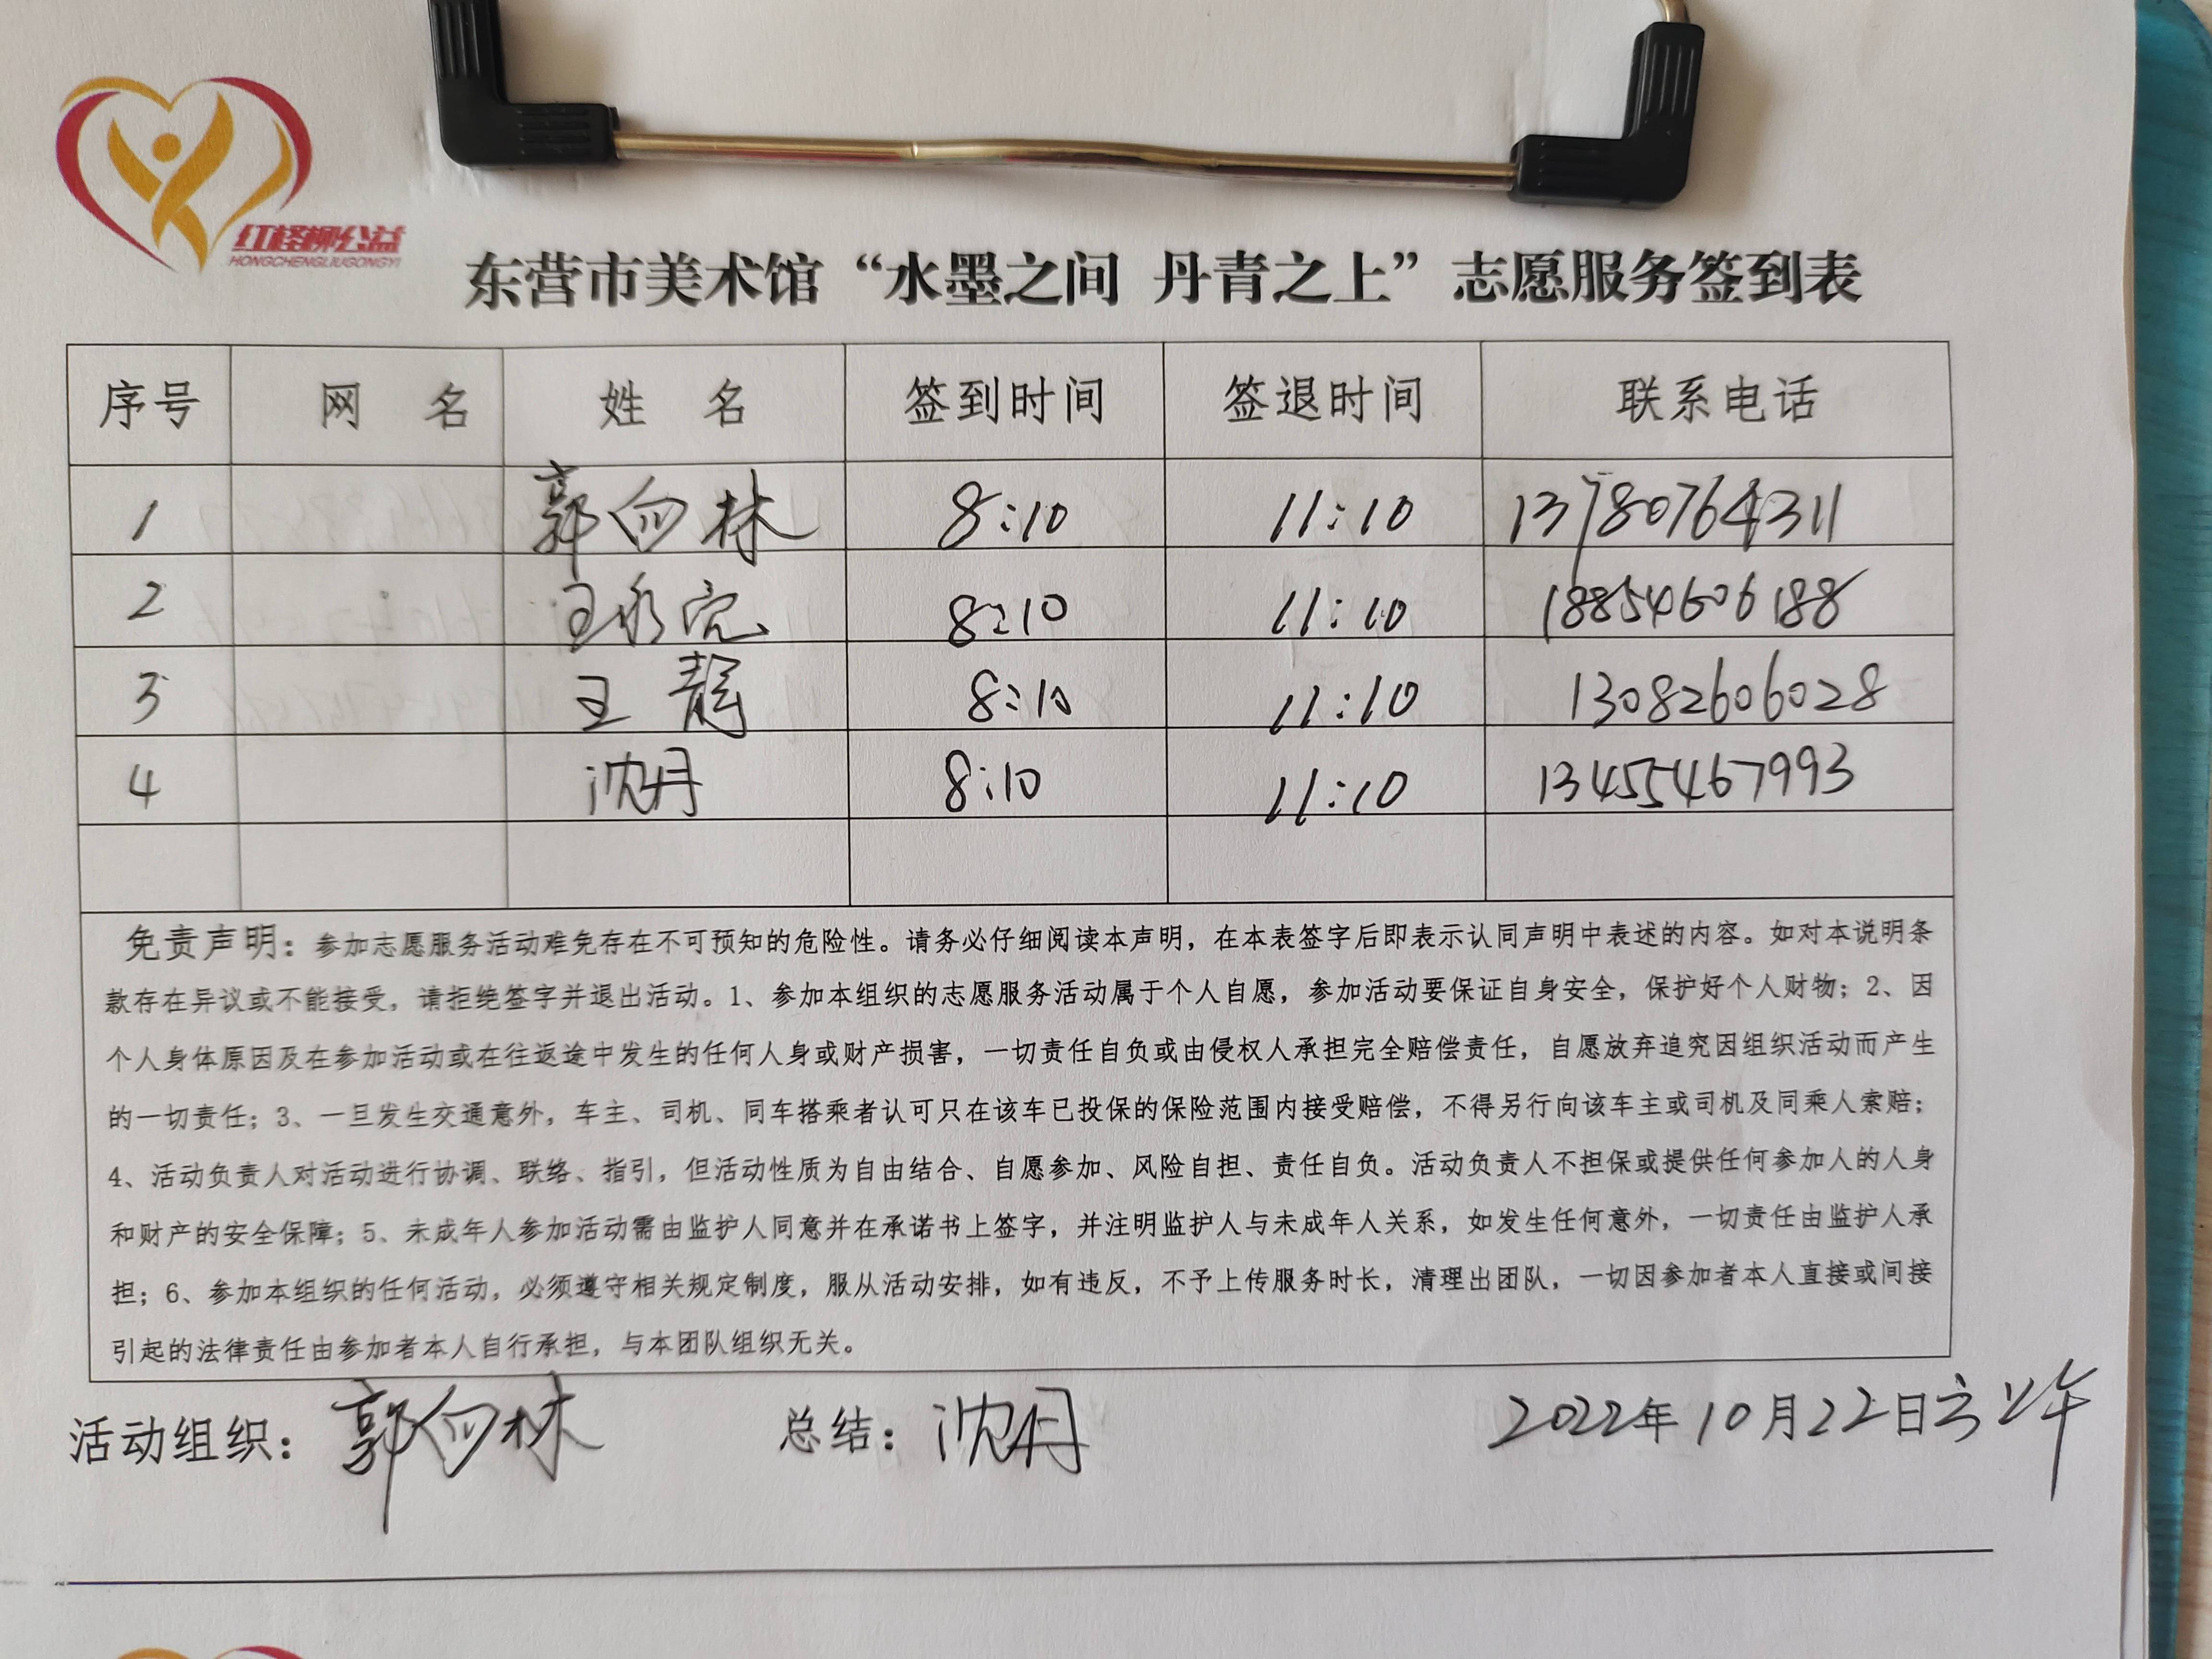 红柽柳公益
HONGCHENGLIUGONGYI
东营市美术馆“水墨之间 丹青之上”志愿服务签到表
序号 网 名 姓 名 签到时间 签退时间 联系电话
1 郭向林 8:10 11:10 13780764311
2 王永亮 8:10 11:10 18854606188
3 王静 8:10 11:10 13082606028
4 沈月 8:10 11:10 13455467993
免责声明：参加志愿服务活动难免存在不可预知的危险性。请务必仔细阅读本声明，在本表签字后即表示认同声明中表述的内容。如对本说明条
款存在异议或不能接受，请拒绝签字并退出活动。1、参加本组织的志愿服务活动属于个人自愿，参加活动要保证自身安全，保护好个人财物；2、因
个人身体原因及在参加活动或在往返途中发生的任何人身或财产损害，一切责任自负或由侵权人承担完全赔偿责任，自愿放弃追究因组织活动而产生
的一切责任；3、一旦发生交通意外，车主、司机、同车搭乘者认可只在该车已投保的保险范围内接受赔偿，不得另行向该车主或司机及同乘人索赔；
4、活动负责人对活动进行协调、联络、指引，但活动性质为自由结合、自愿参加、风险自担、责任自负。活动负责人不担保或提供任何参加人的人身
和财产的安全保障；5、未成年人参加活动需由监护人同意并在承诺书上签字，并注明监护人与未成年人关系，如发生任何意外，一切责任由监护人承
担；6、参加本组织的任何活动，必须遵守相关规定制度，服从活动安排，如有违反，不予上传服务时长，清理出团队，一切因参加者本人直接或间接
引起的法律责任由参加者本人自行承担，与本团队组织无关。
活动组织：郭向林 总结：沈月 2022年10月22日 上午